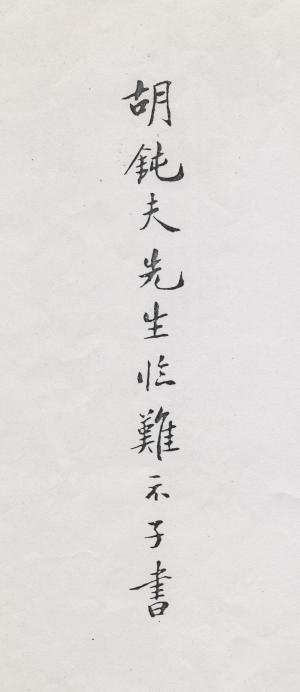 胡鈍夫先生临難示子書